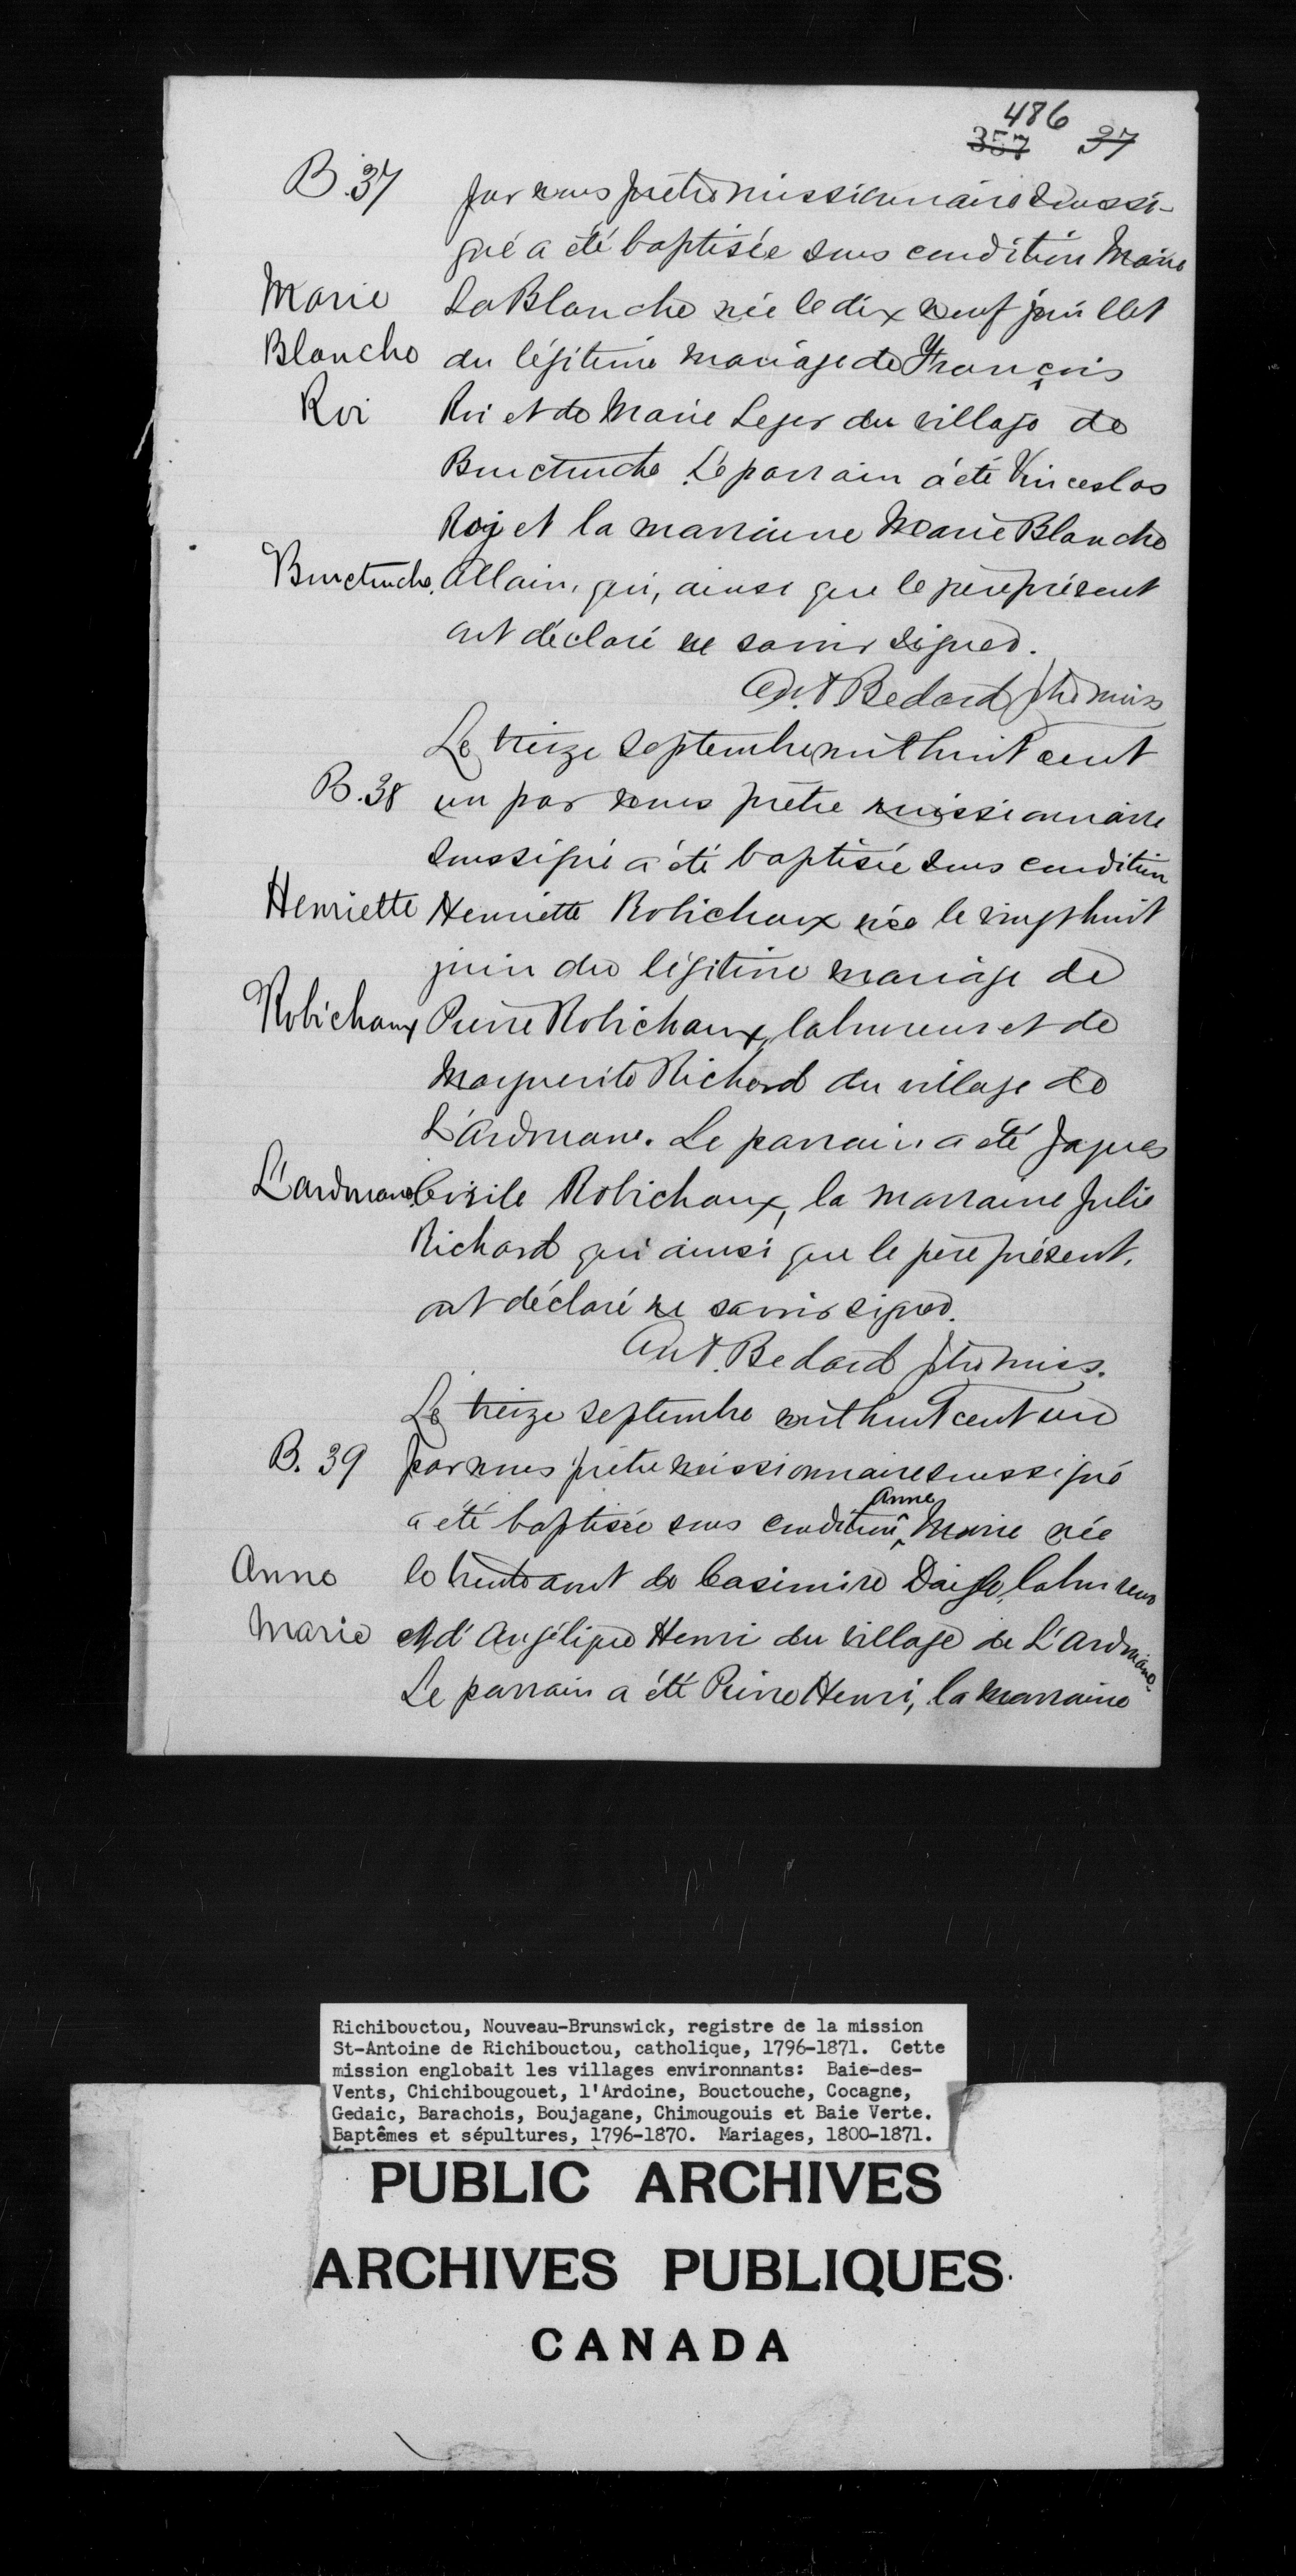 486
357 37
B.37 par nous prêtre missionnaire soussi-
gné a été baptisée sous condition Marie
Marie LaBlanche née le dix neuf juillet
Blanche du légitime mariage de François
Roi Roi et de Marie Leger du village de
Buctuche. Le parrain a été Vinceslas
Roy et la marraine Marie Blanche
Buctuche. Allain, qui, ainsi que le père présent
ont déclaré ne savoir signer.
Ant Bedard ptre miss
Le treize septembre mil huit cent
B.38 un par nous prêtre missionnaire
soussigné a été baptisée sous condition
Henriette Henriette Robichaux née le vingt huit
juin du légitime mariage de
Robichaux Pierre Robichaux, laboureur et de
Marguerite Richard du village de
L'Ardouane. Le parrain a été Jaques
L'ardouane. Civile Robichaux, la marraine Julie
Richard qui ainsi que le père présent,
ont déclaré ne savoir signer.
Ant. Bedard ptre miss.
Le treize septembre mil huit cent un
B. 39 par nous prêtre missionnaire soussigné
a été baptisée sous condition, Anne Marie née
Anne le trente aout de Casimire Daigle, laboureur
Marie et d'Angélique Henri du village de L'Ardouane.
Le parrain a été Pierre Henri, la marraine
Richibouctou, Nouveau-Brunswick, registre de la mission
St-Antoine de Richibouctou, catholique, 1796-1871. Cette
mission englobait les villages environnants: Baie-des-
Vents, Chichibougouet, l'Ardoine, Bouctouche, Cocagne,
Gedaic, Barachois, Boujagane, Chimougouis et Baie Verte.
Baptêmes et sépultures, 1796-1870. Mariages, 1800-1871.
PUBLIC ARCHIVES
ARCHIVES PUBLIQUES
CANADA